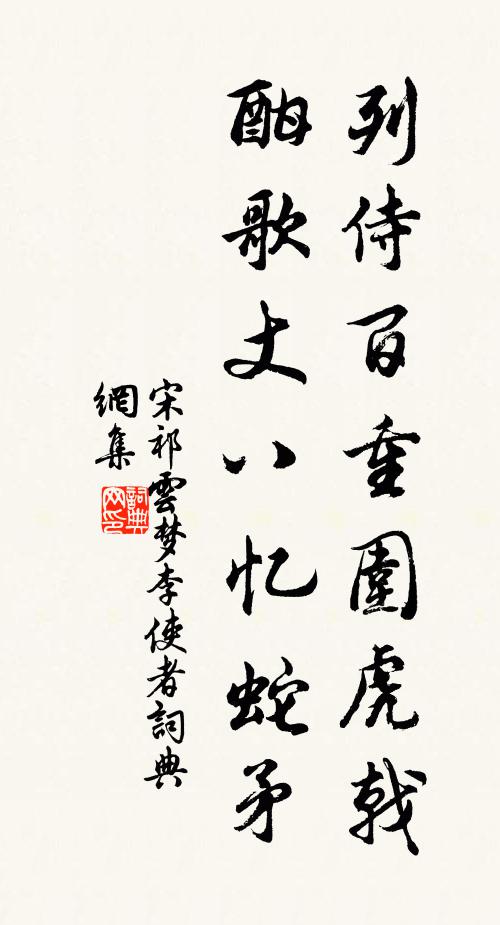 列侍百重圍虎戟
酣歌丈八忆蛇矛
宋祁雲梦李使者詞典
網集
詞典
网印